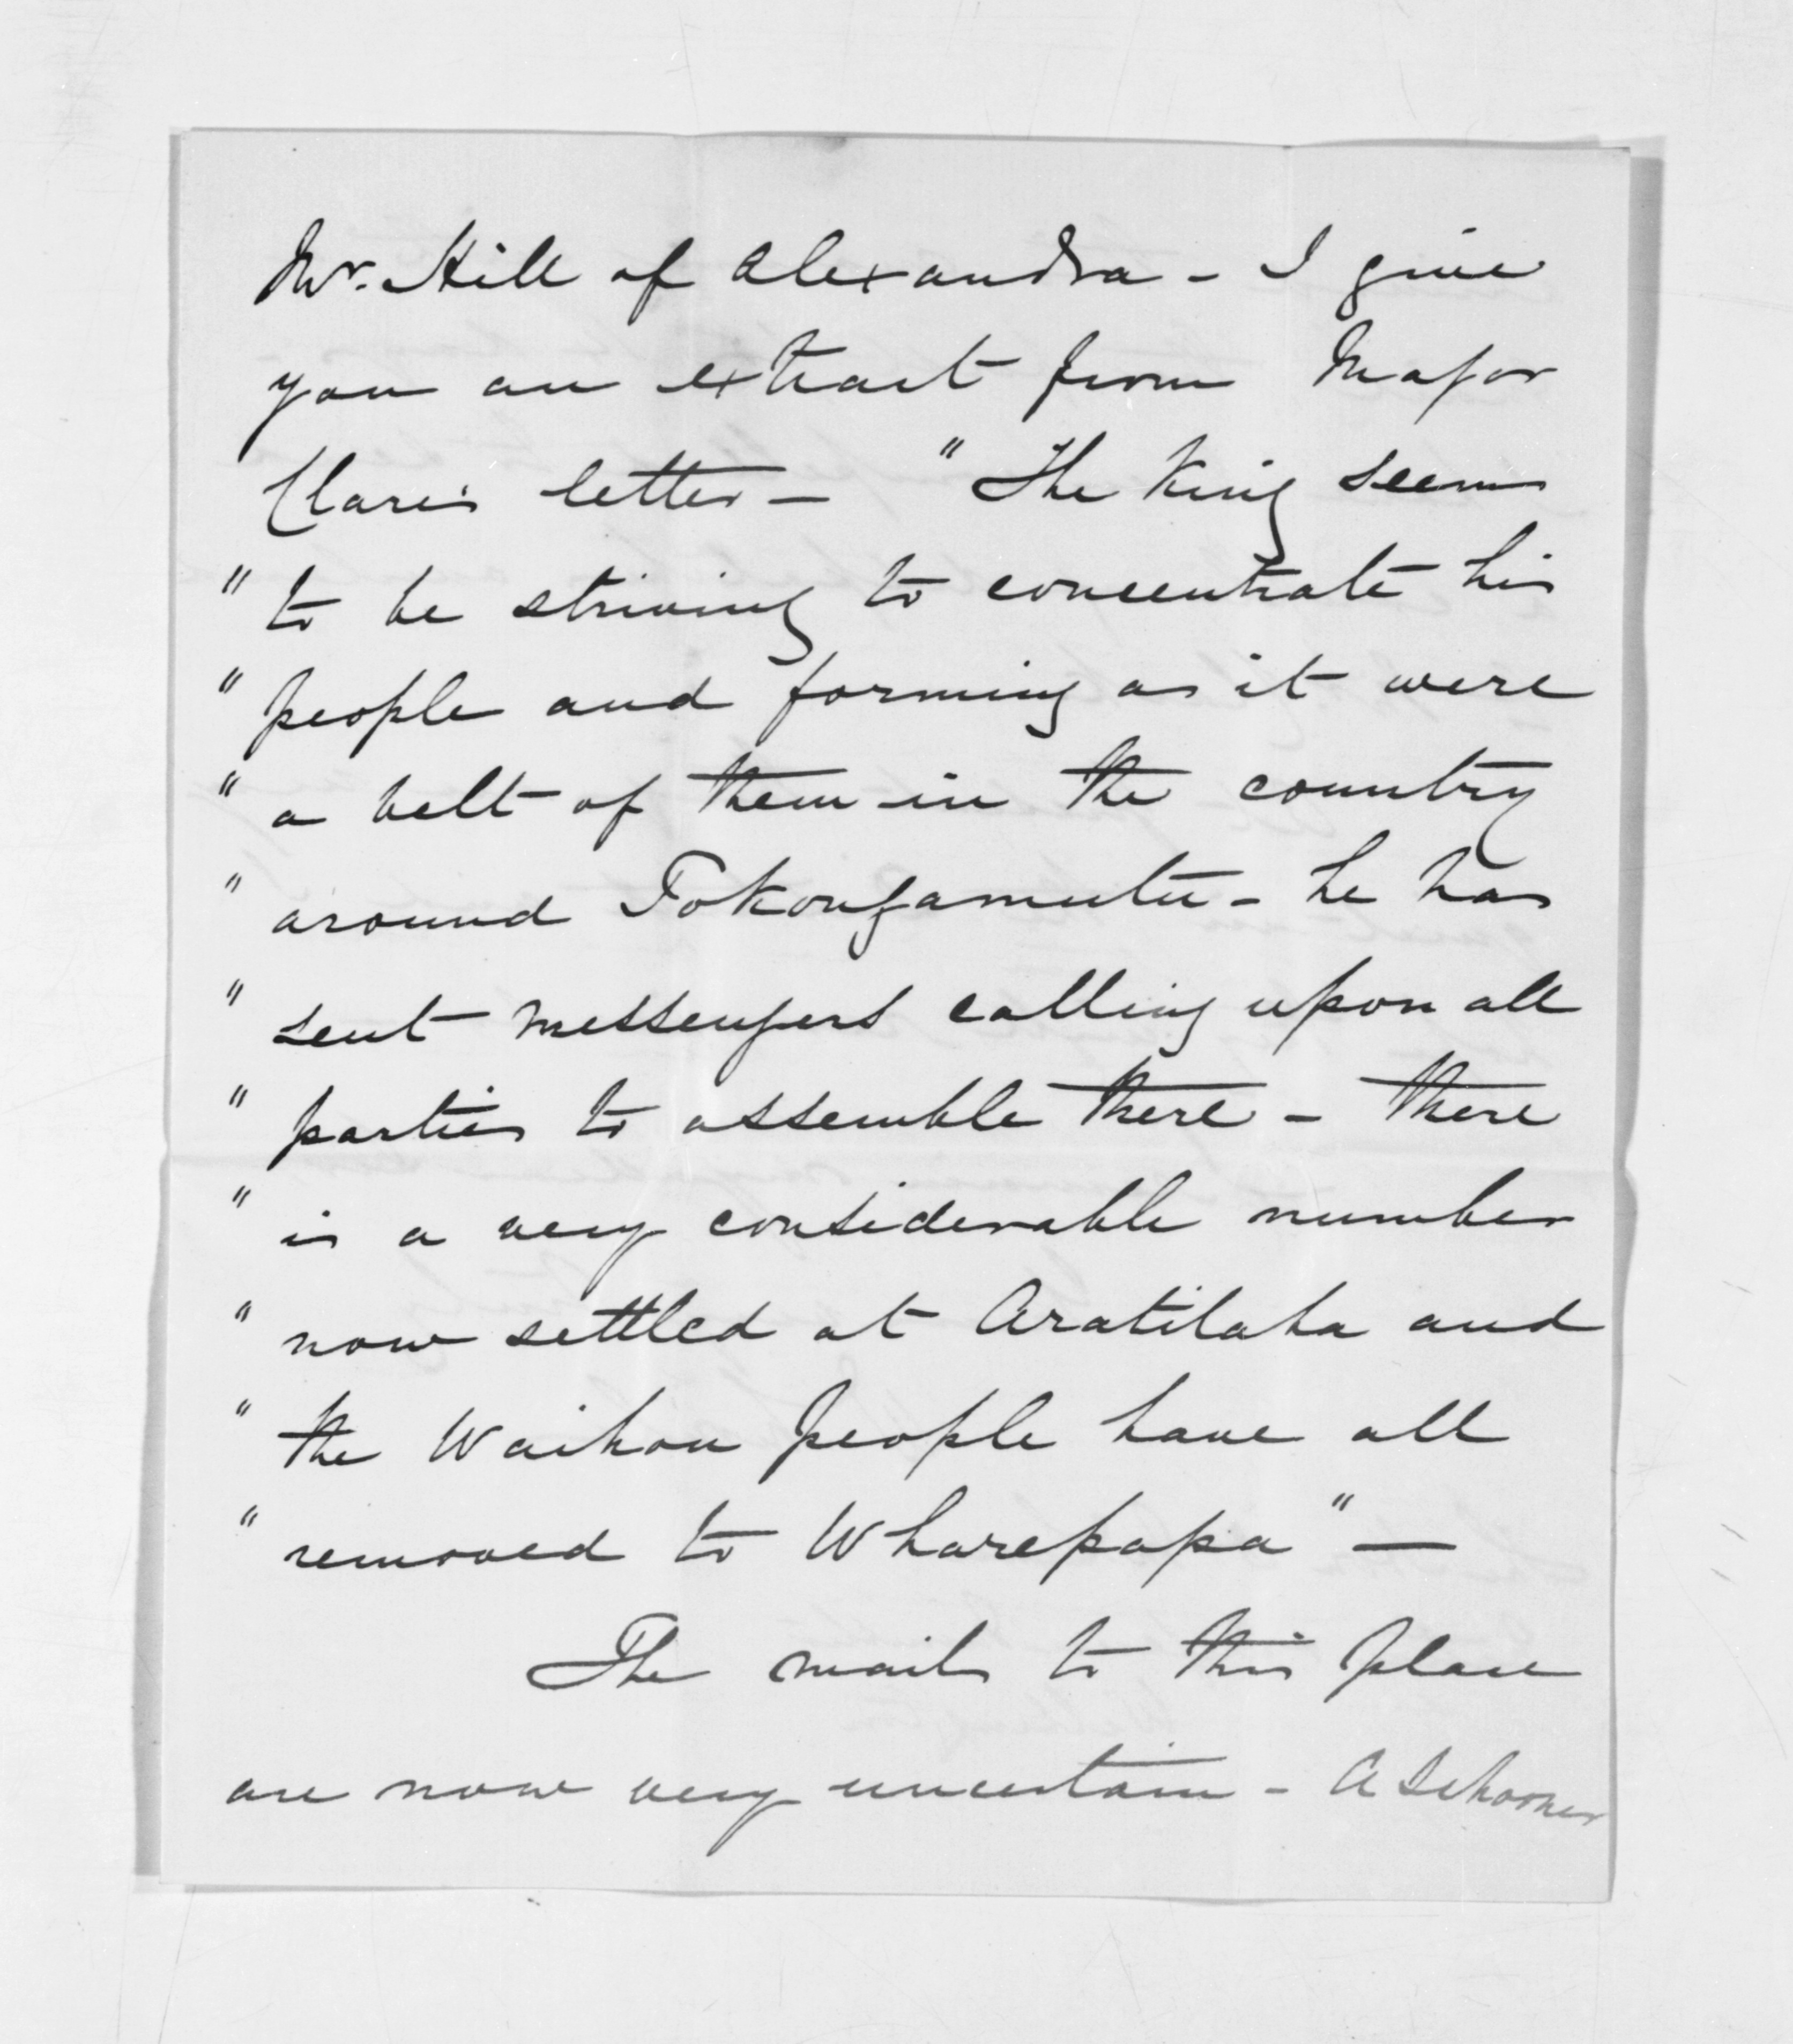 Mr. Hill of Alexandra - I give
you an extract from Major
Clare's letter - "The King seems
" to be striving to concentrate his
" people and forming as it were
" a belt of them in the country
" around Tokongamutu - he has
" sent messengers calling upon all
" parties to assemble there - there
" is a very considerable number
" now settled at Aratitaha and
" the Waihou people have all
" removed to Wharepapa" -
The mails to this place
are now very uncertain - A Schooner